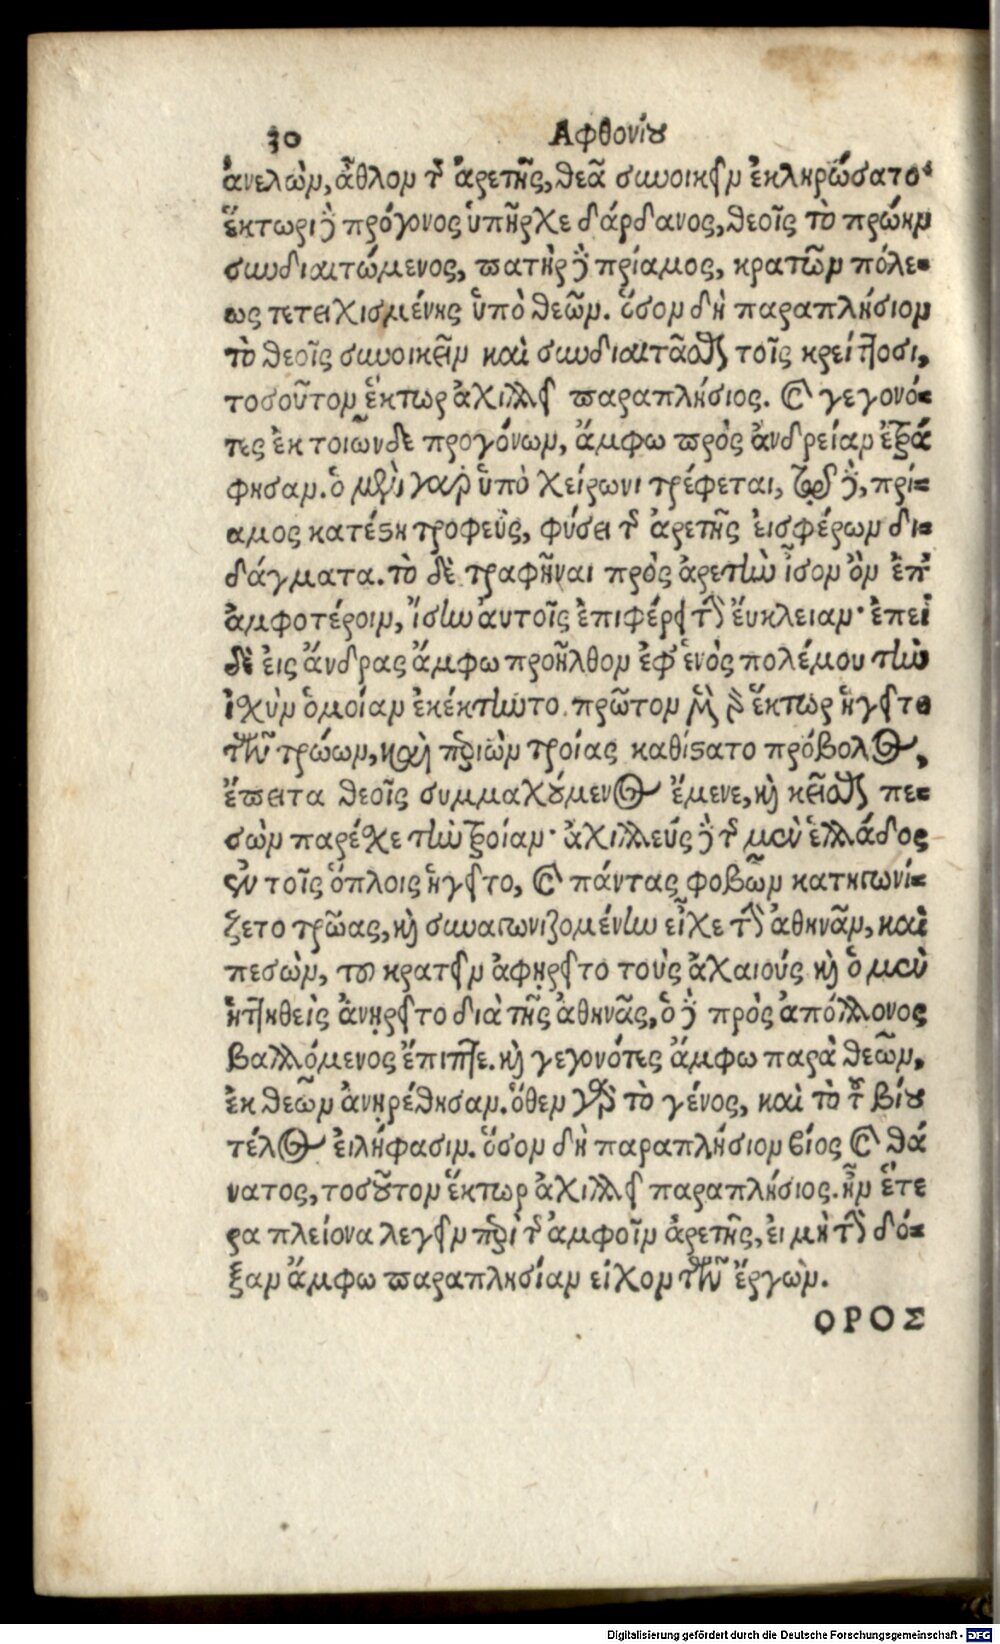 30 Αφθονίου
ἀνελὼν, ἆθλον τῆς ἀρετῆς, θεᾶ συνοικεῖν ἐκληρώσατο·
ἕκτωρι δὲ πρόγονος ὑπῆρχε δάρδανος, θεοῖς τὸ πρώην
συνδιαιτώμενος, πατὴρ δὲ πρίαμος, κρατῶν πόλε-
ως τετειχισμένης ὑπὸ θεῶν. ὅσον δὴ παραπλήσιον
τὸ θεοῖς συνοικεῖν καὶ συνδιαιτᾶσθαι τοῖς κρείττοσι,
τοσοῦτον ἕκτωρ ἀχιλλεῖ παραπλήσιος. καὶ γεγονό-
τες ἐκ τοιῶνδε προγόνων, ἄμφω πρὸς ἀνδρείαν ἐτρά
φησαν. ὁ μὲν γὰρ ὑπὸ χείρωνι τρέφεται, τῷ δὲ, πρί-
αμος κατέστη τροφεὺς, φύσει τῆς ἀρετῆς εἰσφέρων δι-
δάγματα. τὸ δὲ τραφῆναι πρὸς ἀρετὴν ἶσον ὂν ἐπ’
ἀμφοτέροιν, ἴσην αὐτοῖς ἐπιφέρει τὴν ἔυκλειαν· ἐπεὶ
δὲ εἰς ἄνδρας ἄμφω προῆλθον ἐφ’ ἑνὸς πολέμου τὴν
ἰχὺν ὁμοίαν ἐκέκτηντο. πρῶτον μὲν γὰρ ἕκτωρ ἡγεῖτο
τῶν τρώων, καὶ περιὼν τροίας καθίστατο πρόβολος,
ἔπειτα θεοῖς συμμαχούμενος ἔμενε, καὶ κεῖσθαι πε-
σὼν παρέχε τὴν τροίαν· ἀχιλλεύς δὲ τῆς μὲν ἑλλάδος
ἐν τοῖς ὅπλοις ἡγεῖτο, καὶ πάντας φοβῶν κατηγωνί-
ζετο τρῶας, καὶ συναγωνιζομένην εἶχε τὴν ἀθηνᾶν, καὶ
πεσὼν, τὸ κρατεῖν ἀφῃρεῖτο τοὺς ἀχαιούς καὶ ὁ μὲν
ἡττηθεὶς ἀνῃρεῖτο διὰ τῆς ἀθηνᾶς, ὁ δὲ πρὸς ἀπόλλονος
βαλλόμενος ἔπιπτε. καὶ γεγονότες ἄμφω παρὰ θεῶν,
ἐκ θεῶν ἀνῃρέθησαν. ὅθεν γὰρ τὸ γένος, καὶ τὸ τοῦ βίου
τέλος εἰλήφασιν. ὅσον δὴ παραπλήσιον βίος καὶ θά
νατος, τοσοῦτον ἕκτωρ ἀχιλλεῖ παραπλήσιος. ἦν ἕτε
ρα πλείονα λεγεῖν περὶ τῆς ἀμφοῖν ἀρετῆς, εἰ μὴ τὴν δό-
ξαν ἄμφω παραπλησίαν εἶχον τῶν ἔργων.
ΟΡΟΣ
Digitalisierung gefördert durch die Deutsche Forschungsgemeinschaft - DFG